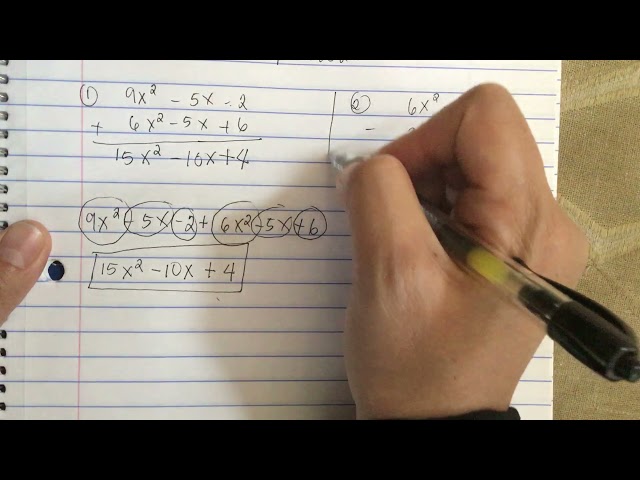 ① 9x² - 5x - 2
+ 6x² - 5x + 6
15x² - 10x + 4
9x² - 5x - 2 + 6x² - 5x + 6
15x² - 10x + 4
② 6x²
-